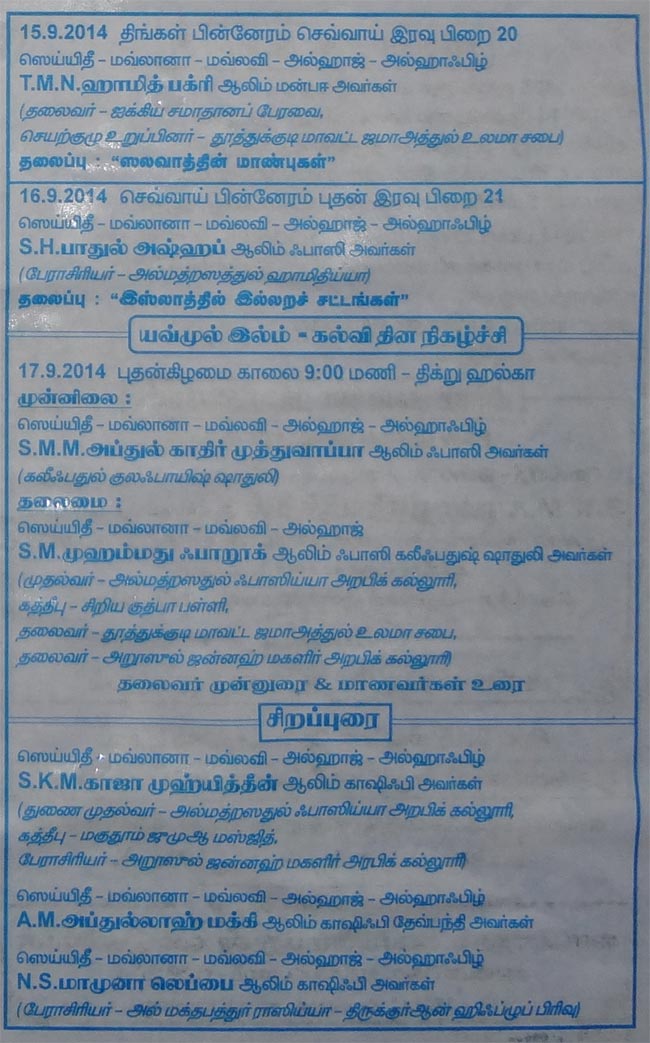 15.9.2014 திங்கள் பின்னேரம் செவ்வாய் இரவு பிறை 20
ஸெய்யிதீ – மவ்லானா – மவ்லவி – அல்ஹாஜ் – அல்ஹாஃபிழ்
T.M.N.ஹாமித் பக்ரி ஆலிம் மன்பஈ அவர்கள்
(தலைவர் – ஐக்கிய சமாதானப் பேரவை,
செயற்குழு உறுப்பினர் – தூத்துக்குடி மாவட்ட ஜமாஅத்துல் உலமா சபை)
தலைப்பு : “ஸலவாத்தீன் மாண்புகள்”
16.9.2014 செவ்வாய் பின்னேரம் புதன் இரவு பிறை 21
ஸெய்யிதீ – மவ்லானா – மவ்லவி – அல்ஹாஜ் – அல்ஹாஃபிழ்
S.H.பாதுல் அஷ்ஹப் ஆலிம் ஃபாஸி அவர்கள்
(பேராசிரியர் – அல்மத்றஸத்துல் ஹாமிதிய்யா)
தலைப்பு : “இஸ்லாத்தில் இல்லறச் சட்டங்கள்”
யவ்முல் இல்ம் - கல்வி தின நிகழ்ச்சி
17.9.2014 புதன்கிழமை காலை 9:00 மணி – திக்ரு ஹல்கா
முன்னிலை :
ஸெய்யிதீ – மவ்லானா – மவ்லவி – அல்ஹாஜ் – அல்ஹாஃபிழ்
S.M.M.அப்துல் காதிர் முத்துவாப்பா ஆலிம் ஃபாஸி அவர்கள்
(கலீஃபதுல் குலஃபாயிஷ் ஷாதுலி)
தலைமை :
ஸெய்யிதீ – மவ்லானா – மவ்லவி – அல்ஹாஜ்
S.M.முஹம்மது ஃபாறூக் ஆலிம் ஃபாஸி கலீஃபதுஷ் ஷாதுலி அவர்கள்
(முதல்வர் – அல்மத்றஸதுல் ஃபாஸிய்யா அறபிக் கல்லூரி,
கத்தீபு – சிறிய குத்பா பள்ளி,
தலைவர் – தூத்துக்குடி மாவட்ட ஜமாஅத்துல் உலமா சபை,
தலைவர் – அறூஸுல் ஜன்னஹ் மகளிர் அறபிக் கல்லூரி)
தலைவர் முன்னுரை & மாணவர்கள் உரை
சிறப்புரை
ஸெய்யிதீ – மவ்லானா – மவ்லவி – அல்ஹாஜ் – அல்ஹாஃபிழ்
S.K.M.காஜா முஹ்யித்தீன் ஆலிம் காஷிஃபி அவர்கள்
(துணை முதல்வர் – அல்மத்றஸதுல் ஃபாஸிய்யா அறபிக் கல்லூரி,
கத்தீபு – மகுதூம் ஜுமுஆ மஸ்ஜித்,
பேராசிரியர் – அறூஸுல் ஜன்னஹ் மகளிர் அரபிக் கல்லூரி)
ஸெய்யிதீ – மவ்லானா – மவ்லவி – அல்ஹாஜ் – அல்ஹாஃபிழ்
A.M.அப்துல்லாஹ் மக்கி ஆலிம் காஷிஃபி தேவ்பந்தி அவர்கள்
ஸெய்யிதீ – மவ்லானா – மவ்லவி – அல்ஹாஜ் – அல்ஹாஃபிழ்
N.S.மாமுனா லெப்பை ஆலிம் காஷிஃபி அவர்கள்
(பேராசிரியர் – அல் மக்தபத்துர் ராஸிய்யா – திருக்குர்ஆன் ஹிஃப்ழுப் பிரிவு)